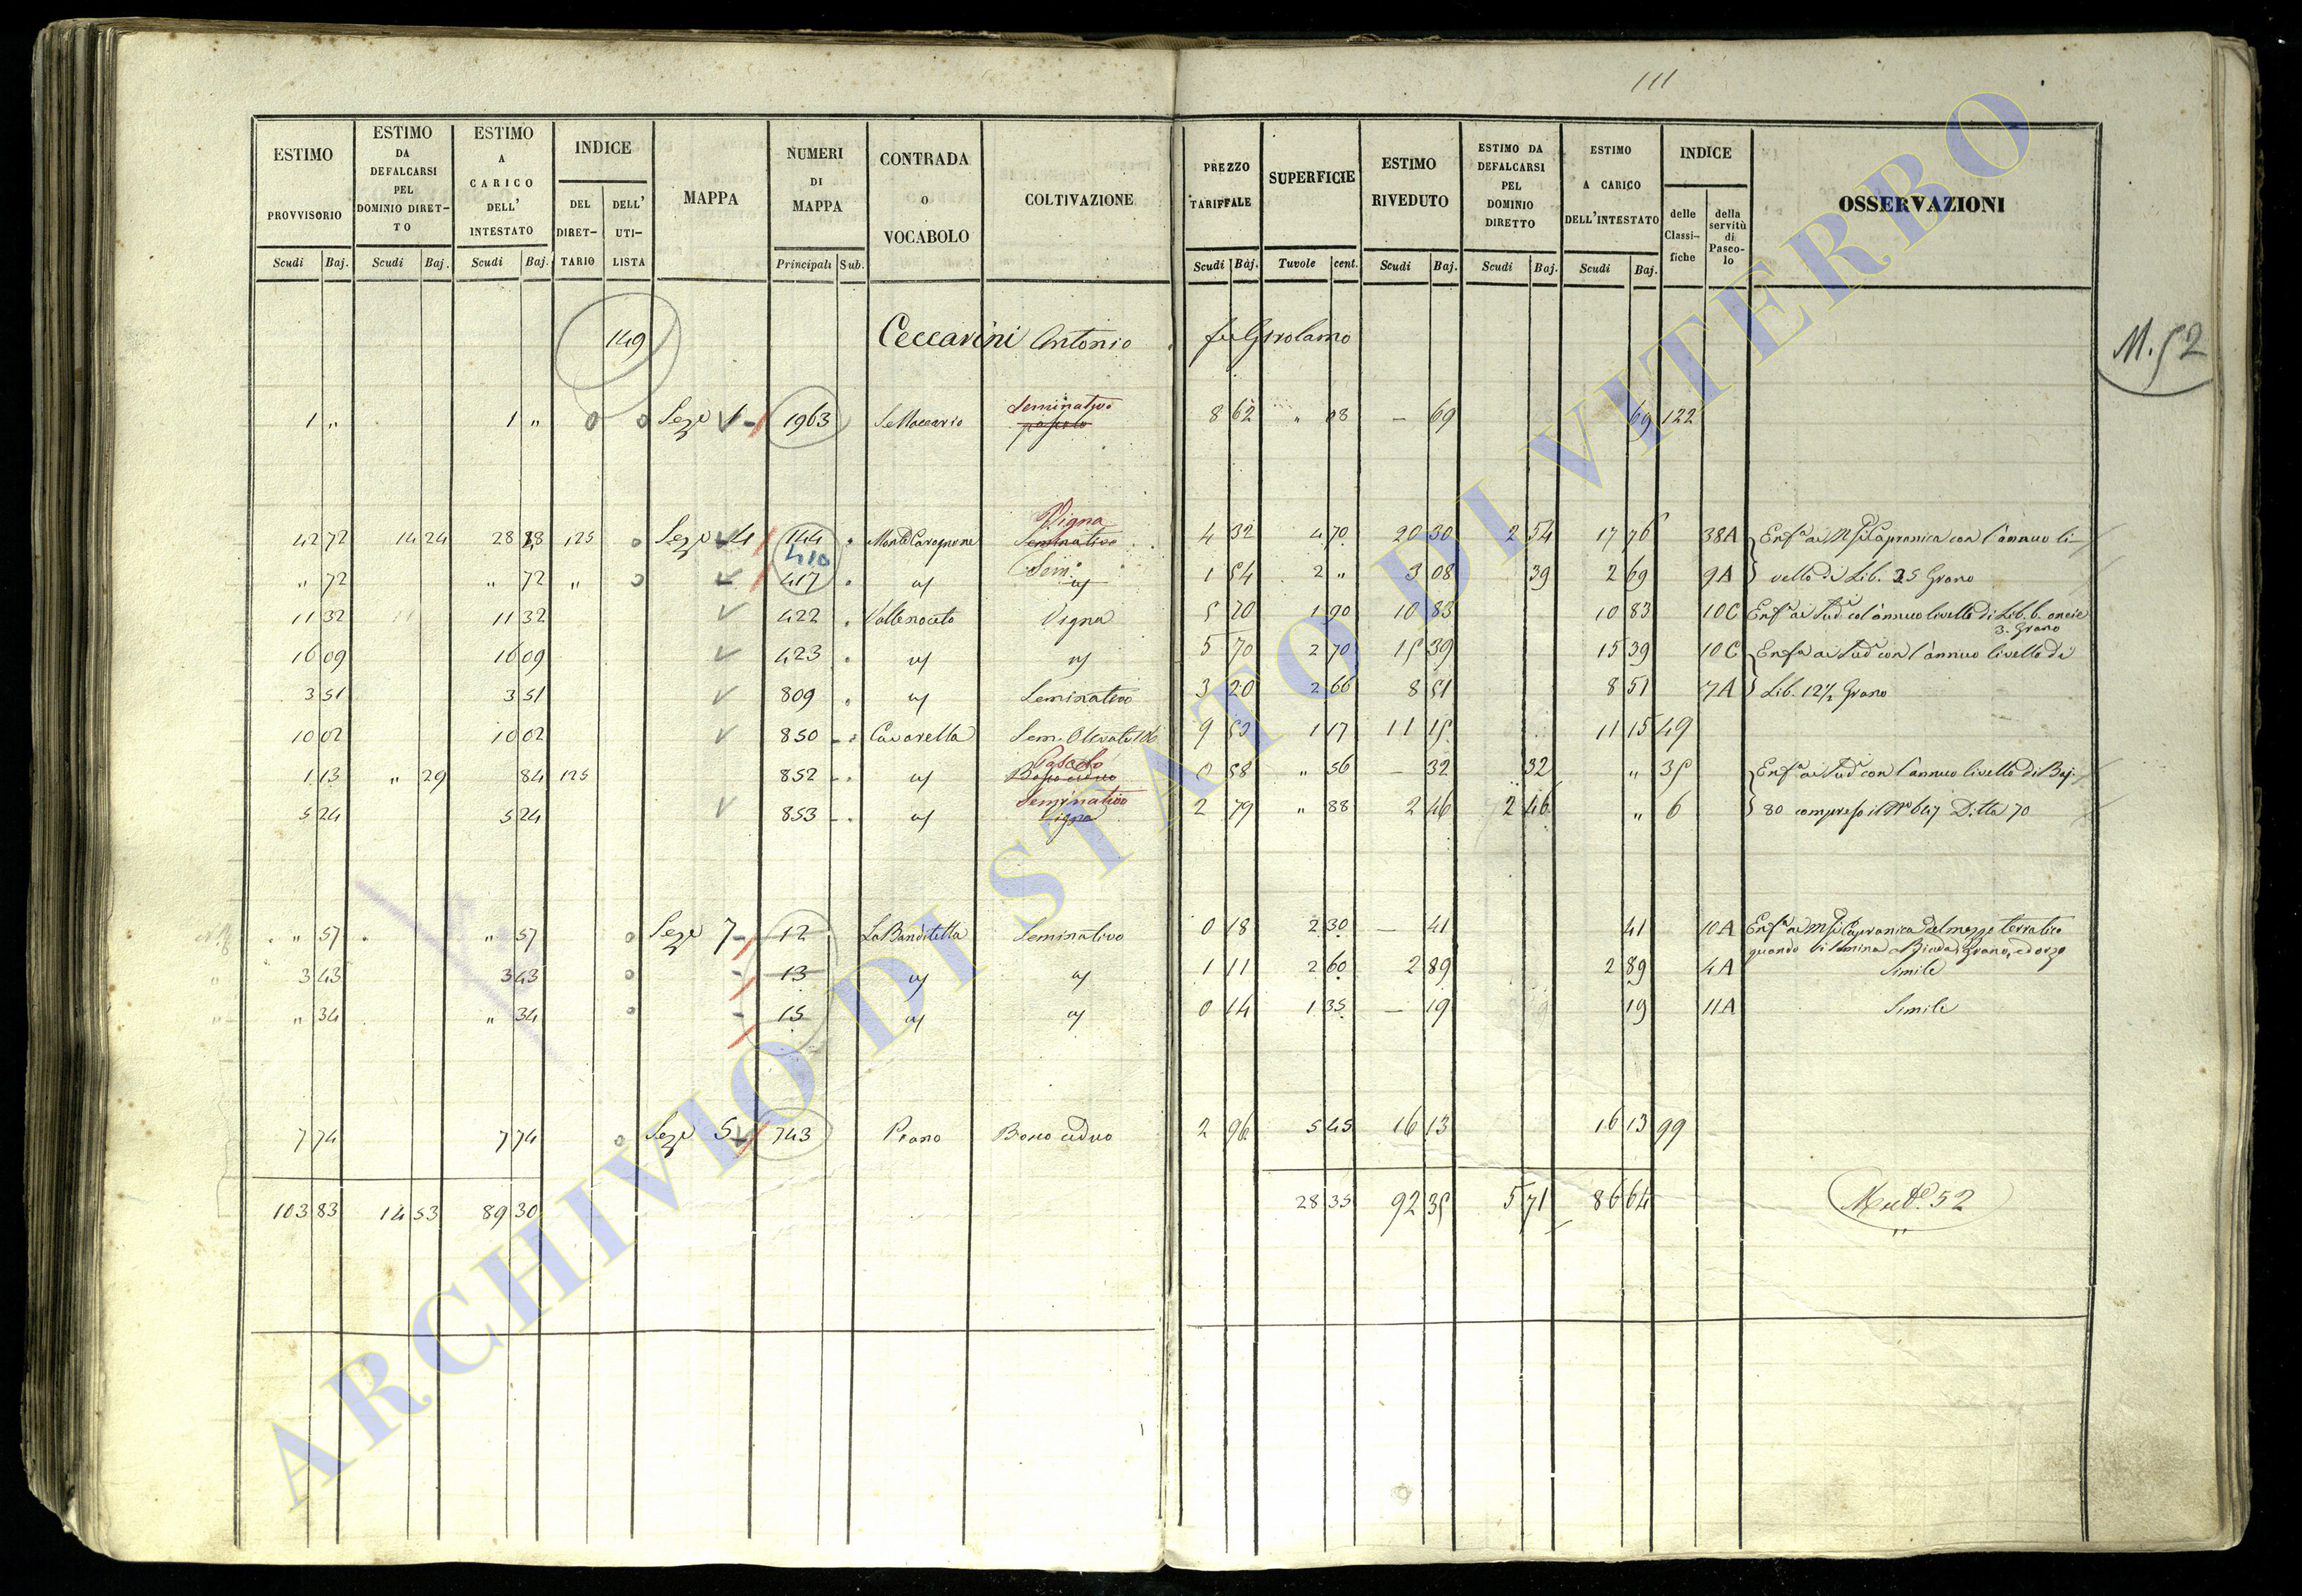 111
ESTIMO PROVVISORIO Scudi Baj.
ESTIMO DA DEFALCARSI PEL DOMINIO DIRET- TO Scudi Baj.
ESTIMO A CARICO DELL' INTESTATO Scudi Baj.
INDICE DEL DIRET- TARIO DELL' UTI- LISTA
MAPPA
NUMERI DI MAPPA Principali Sub.
CONTRADA o VOCABOLO
COLTIVAZIONE
PREZZO TARIFFALE Scudi Baj.
SUPERFICIE Tavole cent.
ESTIMO RIVEDUTO Scudi Baj.
ESTIMO DA DEFALCARSI PEL DOMINIO DIRETTO Scudi Baj.
ESTIMO A CARICO DELL'INTESTATO Scudi Baj.
INDICE delle Classi- fiche della servitù di Pasco- lo
OSSERVAZIONI
149 Ceccarini Antonio fu Girolamo
M. 52
Seminativo
1 " 1 " 0 0 Sez.e 1 1963 pascolo 8 62 " 08 — 69 69 122
Vigna
42 72 14 24 28 125 Sez.e 4 144 Seminativo 4 32 4 70 20 30 2 54 17 76 38A Enf.a ai Capranica con l'annuo li-
410 Sem.
" 72 " 72 " 417 1 54 2 " 3 08 39 2 69 9A vello di Lib. 25 Grano
11 32 11 32 422 Valle noceto Vigna 5 70 1 90 10 83 10 83 10C Enf.a ai Sud. col annuo livello di Lib. 6. oncie
3. Grano
16 09 16 09 423 5 70 2 70 15 39 15 39 10C Enf.a ai Sud. con l'annuo livello di
3 51 3 51 809 Seminativo 3 20 2 66 8 51 8 51 7A Lib. 12½ Grano
10 02 10 02 850 Cavarella Sem. Olivato 9 53 1 17 11 15 11 15 49
Pascolo
1 13 " 29 84 125 852 Bosco ceduo 0 58 " 56 — 32 32 " 35 Enf.a ai Sud. con l'annuo livello di Baj.
Seminativo
5 24 5 24 853 Vigna 2 79 " 88 2 46 2 46 " 6 80 compreso il N° 647 Ditta 70
" 57 " 57 Sez.e 7 12 La Banditella Seminativo 0 18 2 30 — 41 41 10A Enf.a ai Capranica del mezzo terratico
quando si semina a Biada, Grano, ed orzo
3 43 3 43 13 1 11 2 60 2 89 2 89 4A Simile
" 34 " 34 15 0 14 1 35 — 19 19 11A Simile
7 74 7 74 Sez.e 5 743 Piano Bosco ceduo 2 96 5 45 16 13 16 13 99
103 83 14 53 89 30 28 35 92 35 5 71 86 64 52
ARCHIVIO DI STATO DI VITERBO